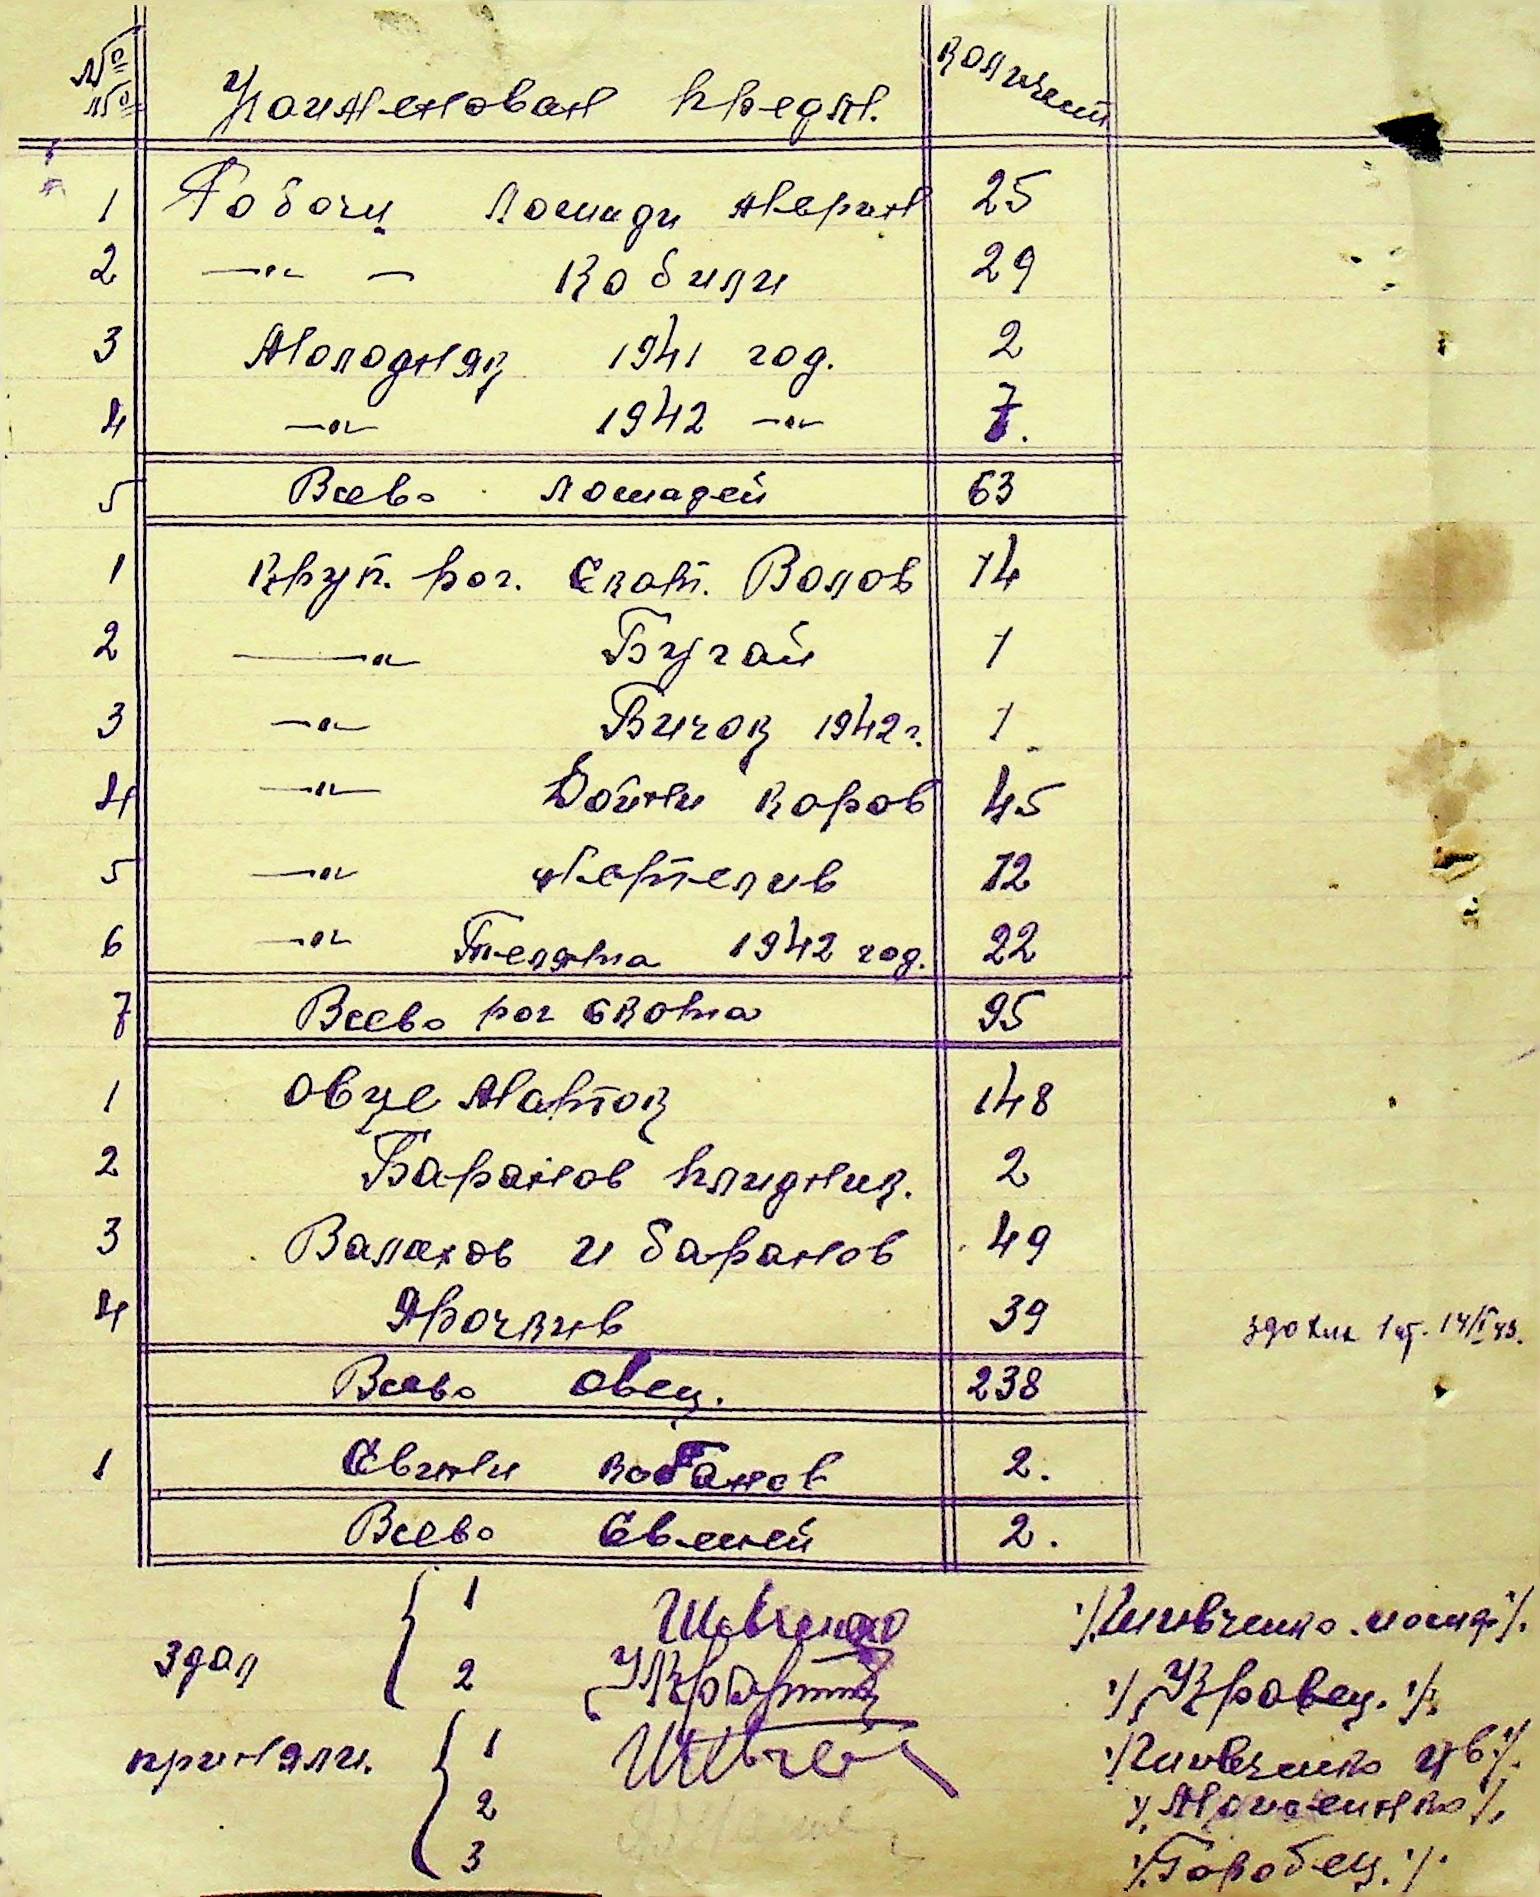 №№ Наименован предм. количест
1 Робочи лошади мерин 25
2 —"— — Кобили 29
3 Молодняк 1941 год. 2
4 —"— 1942 —"— 7.
5 Всево лошадей 63
1 Круп. рог. Скот. Волов 14
2 —"— Бугай 1
3 —"— Бичок 1942 г. 1
4 —"— Дойни коров 45
5 —"— Нетелив 12
6 —"— Телята 1942 год. 22
7 Всево рог скота 95
1 Овце Маток 148
2 Баранов плидник. 2
3 Валахов и баранов 49
4 Ярочкив 39
здохик 1 14/I 43.
Всево овец. 238
1 Свини кабанов 2.
Всево Свиней 2.
здал 1 Шевченко /Шевченко
2 /Кровец./
приняли. 1 /Шевченко
2
3 /Горобец./